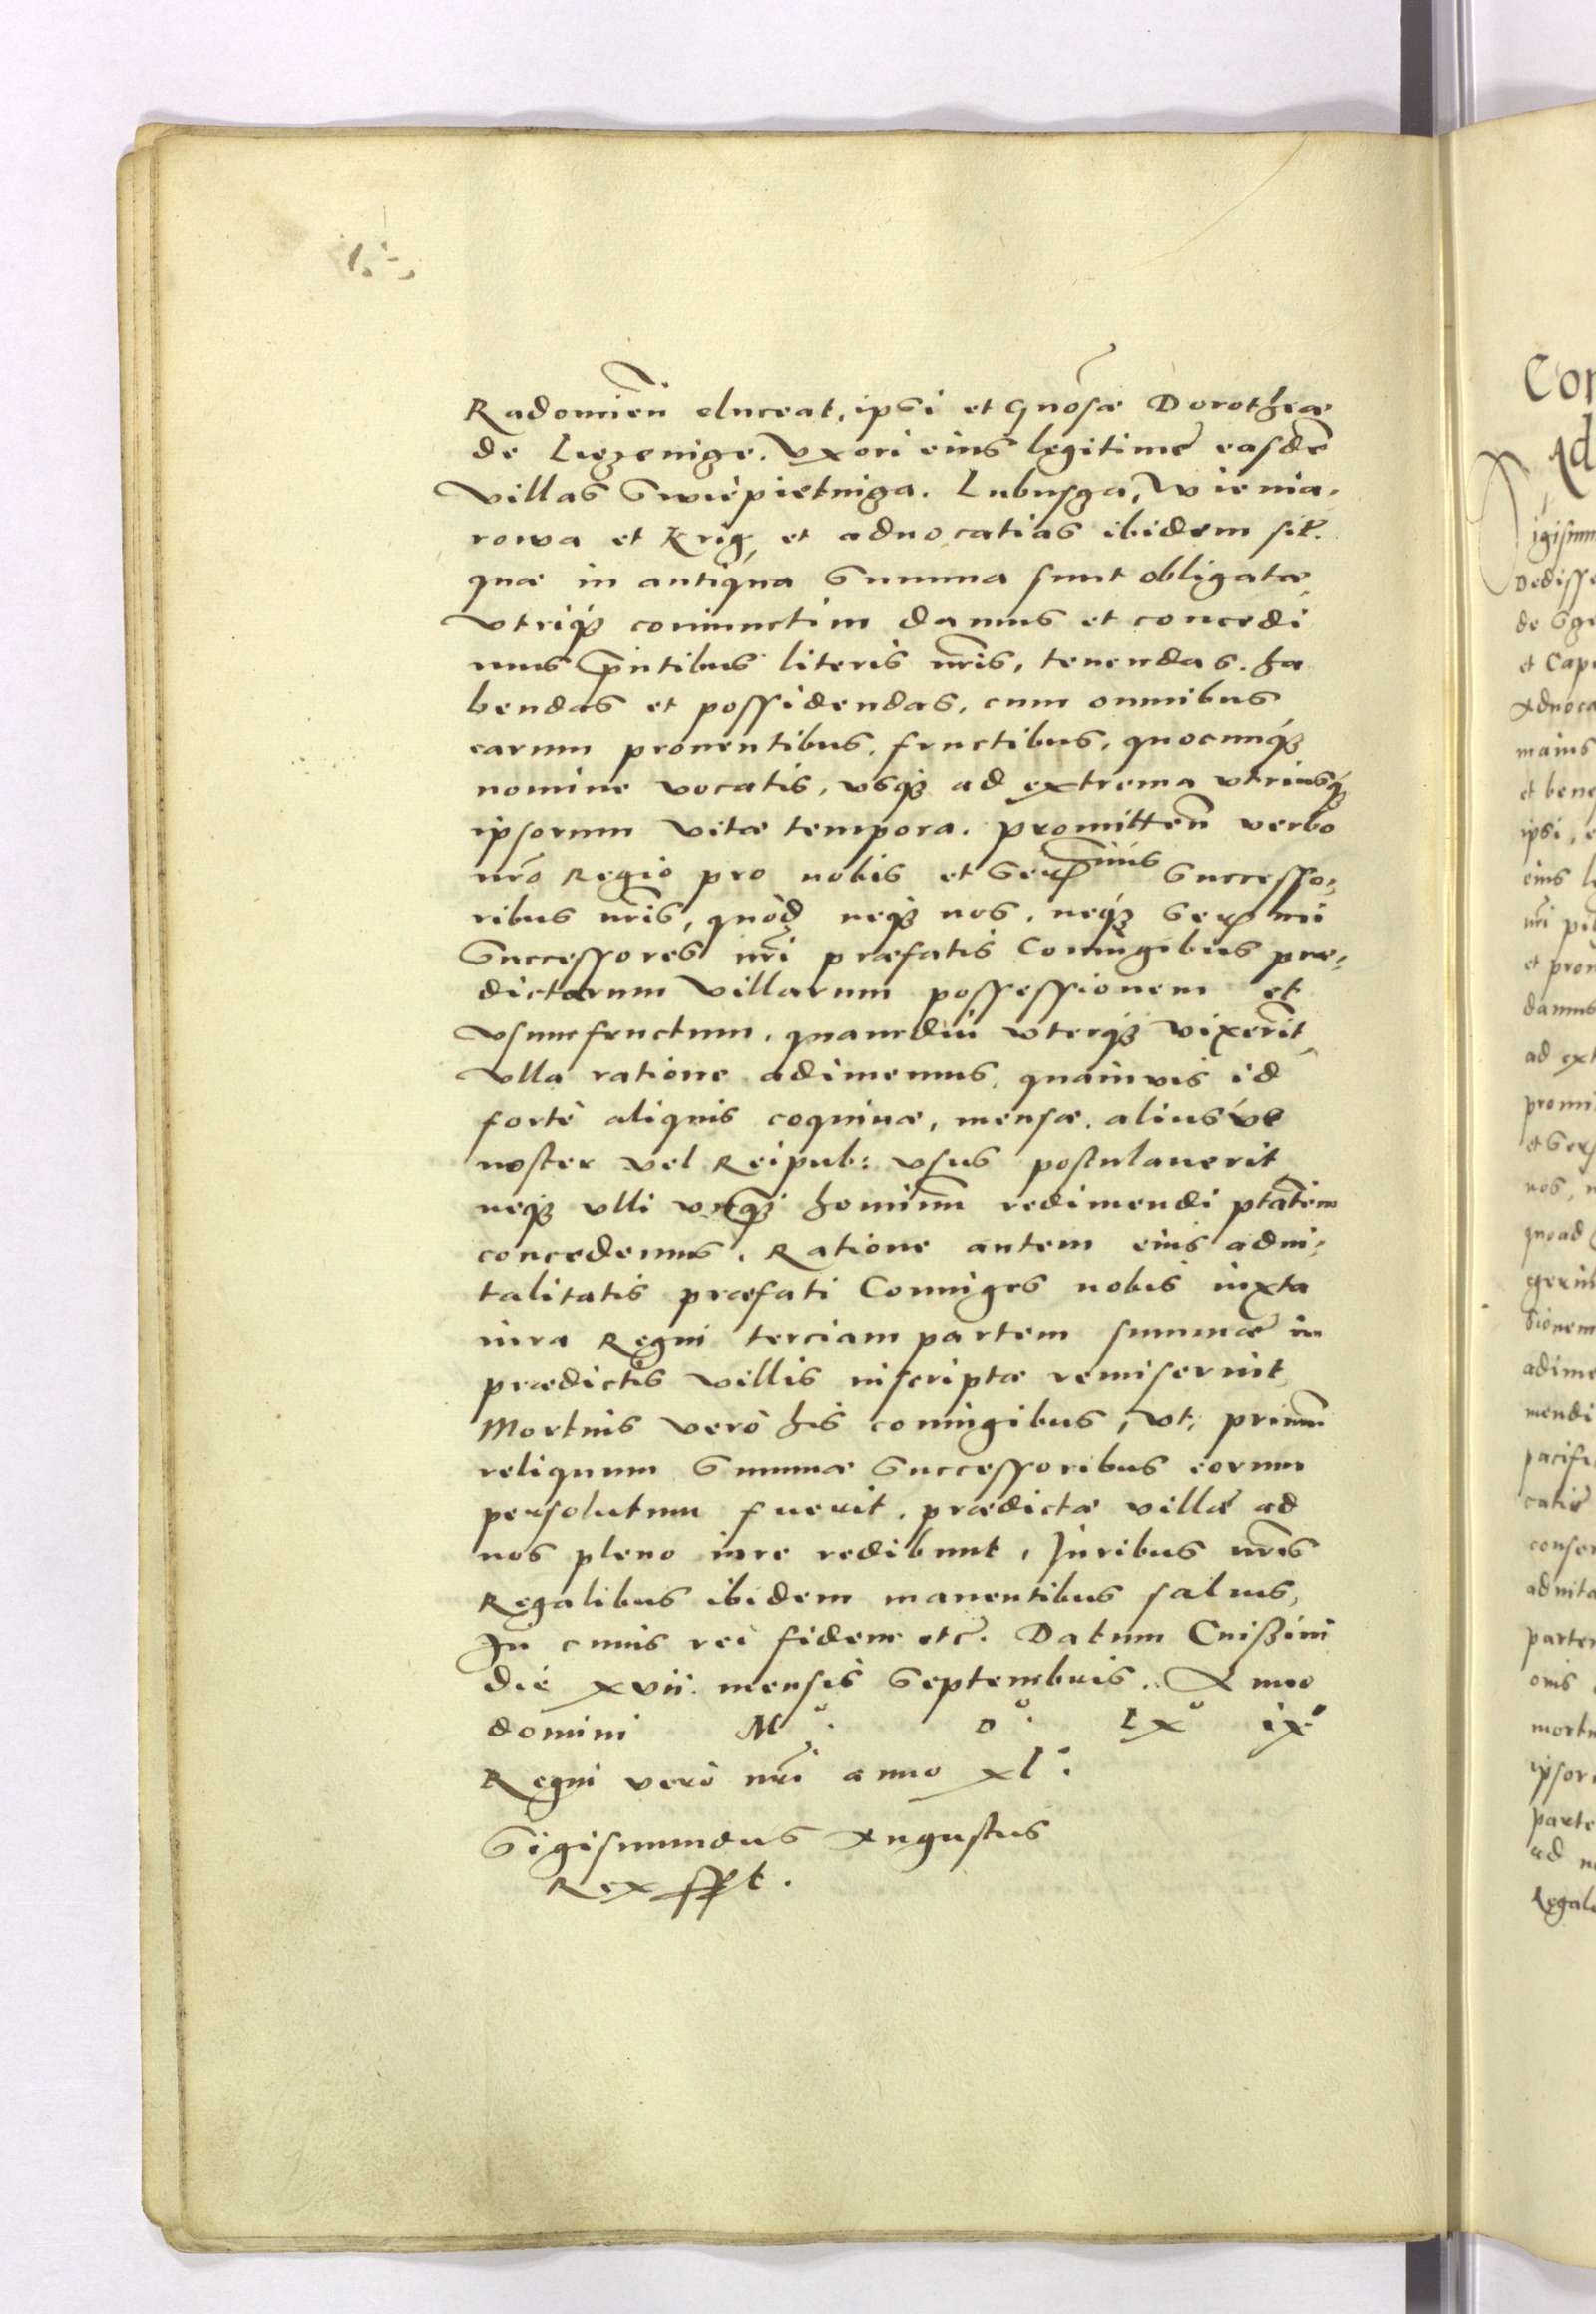 Radomień eluceat, ipsi et Gnosæ Dorotheæ
de Liezenige. Vxori eius legitime easdē
villas Swiepietniga. Lubusga, Wienia,
rowa et Krig, et aduocatias ibidem sit.
quæ in antiqua Summa sunt obligatæ
vtriq3 coniunctim damus et concedi
mus pn̄tibus literis nr̄is, tenendas. ha
bendas et possidendas, cum omnibus
earum prouentibus, fructibus, quocunq3
nomine vocatis, vsq3 ad extrema vtriusq3
ipsorum vitæ tempora. promitteñ verbo
nr̄o Regio pro nobis et Ser̄mis Successo,
ribus nr̄is, quòd neq3 nos, neq3 Ser̄mi
Successores nr̄i præfatis Coniugibus præ,
dictarum Villarum possessionem et
vsumfructum, quamdiu vterq3 vixerit
vlla ratione adimemus, quamuis id
fortè aliquis coquinæ, mensæ, aliusúe
noster vel Reipub: vsus postulauerit
neq3 vlli vnq3 hominū redimendi ptātem
concedemus. Ratione autem eius adui,
talitatis præfati Coniuges nobis iuxta
iura Regni terciam partem summæ in
prædictis villis inscriptæ remiserunt
Mortuis verò his coniugibus, vt, primū
reliquum Summæ Successoribus eorum
persolutum fuerit, prædictæ villæ ad
nos pleno iure redibunt, Iuribus nr̄is
Regalibus ibidem manentibus saluis,
In cuius rei fidem etc. Datum Cnißini
die xvii. mensis Septembris. Anno
domini M°. D°. Lx° ix°
Regni verò nr̄i anno xl°.
Sigismundus Augustus
Rex sspt.
Con
Ad
igismu
Dedisse
de Sgi
et Cap
Aduoca
maius
et bene
ipsi, e
eius l
et pro
damus
ad ext
promi
nos, n
quoad
sionem
adime
mendi
pacifi
catis
conser
aduita
parte
mortu
ipsor
parte
ad n
Regale